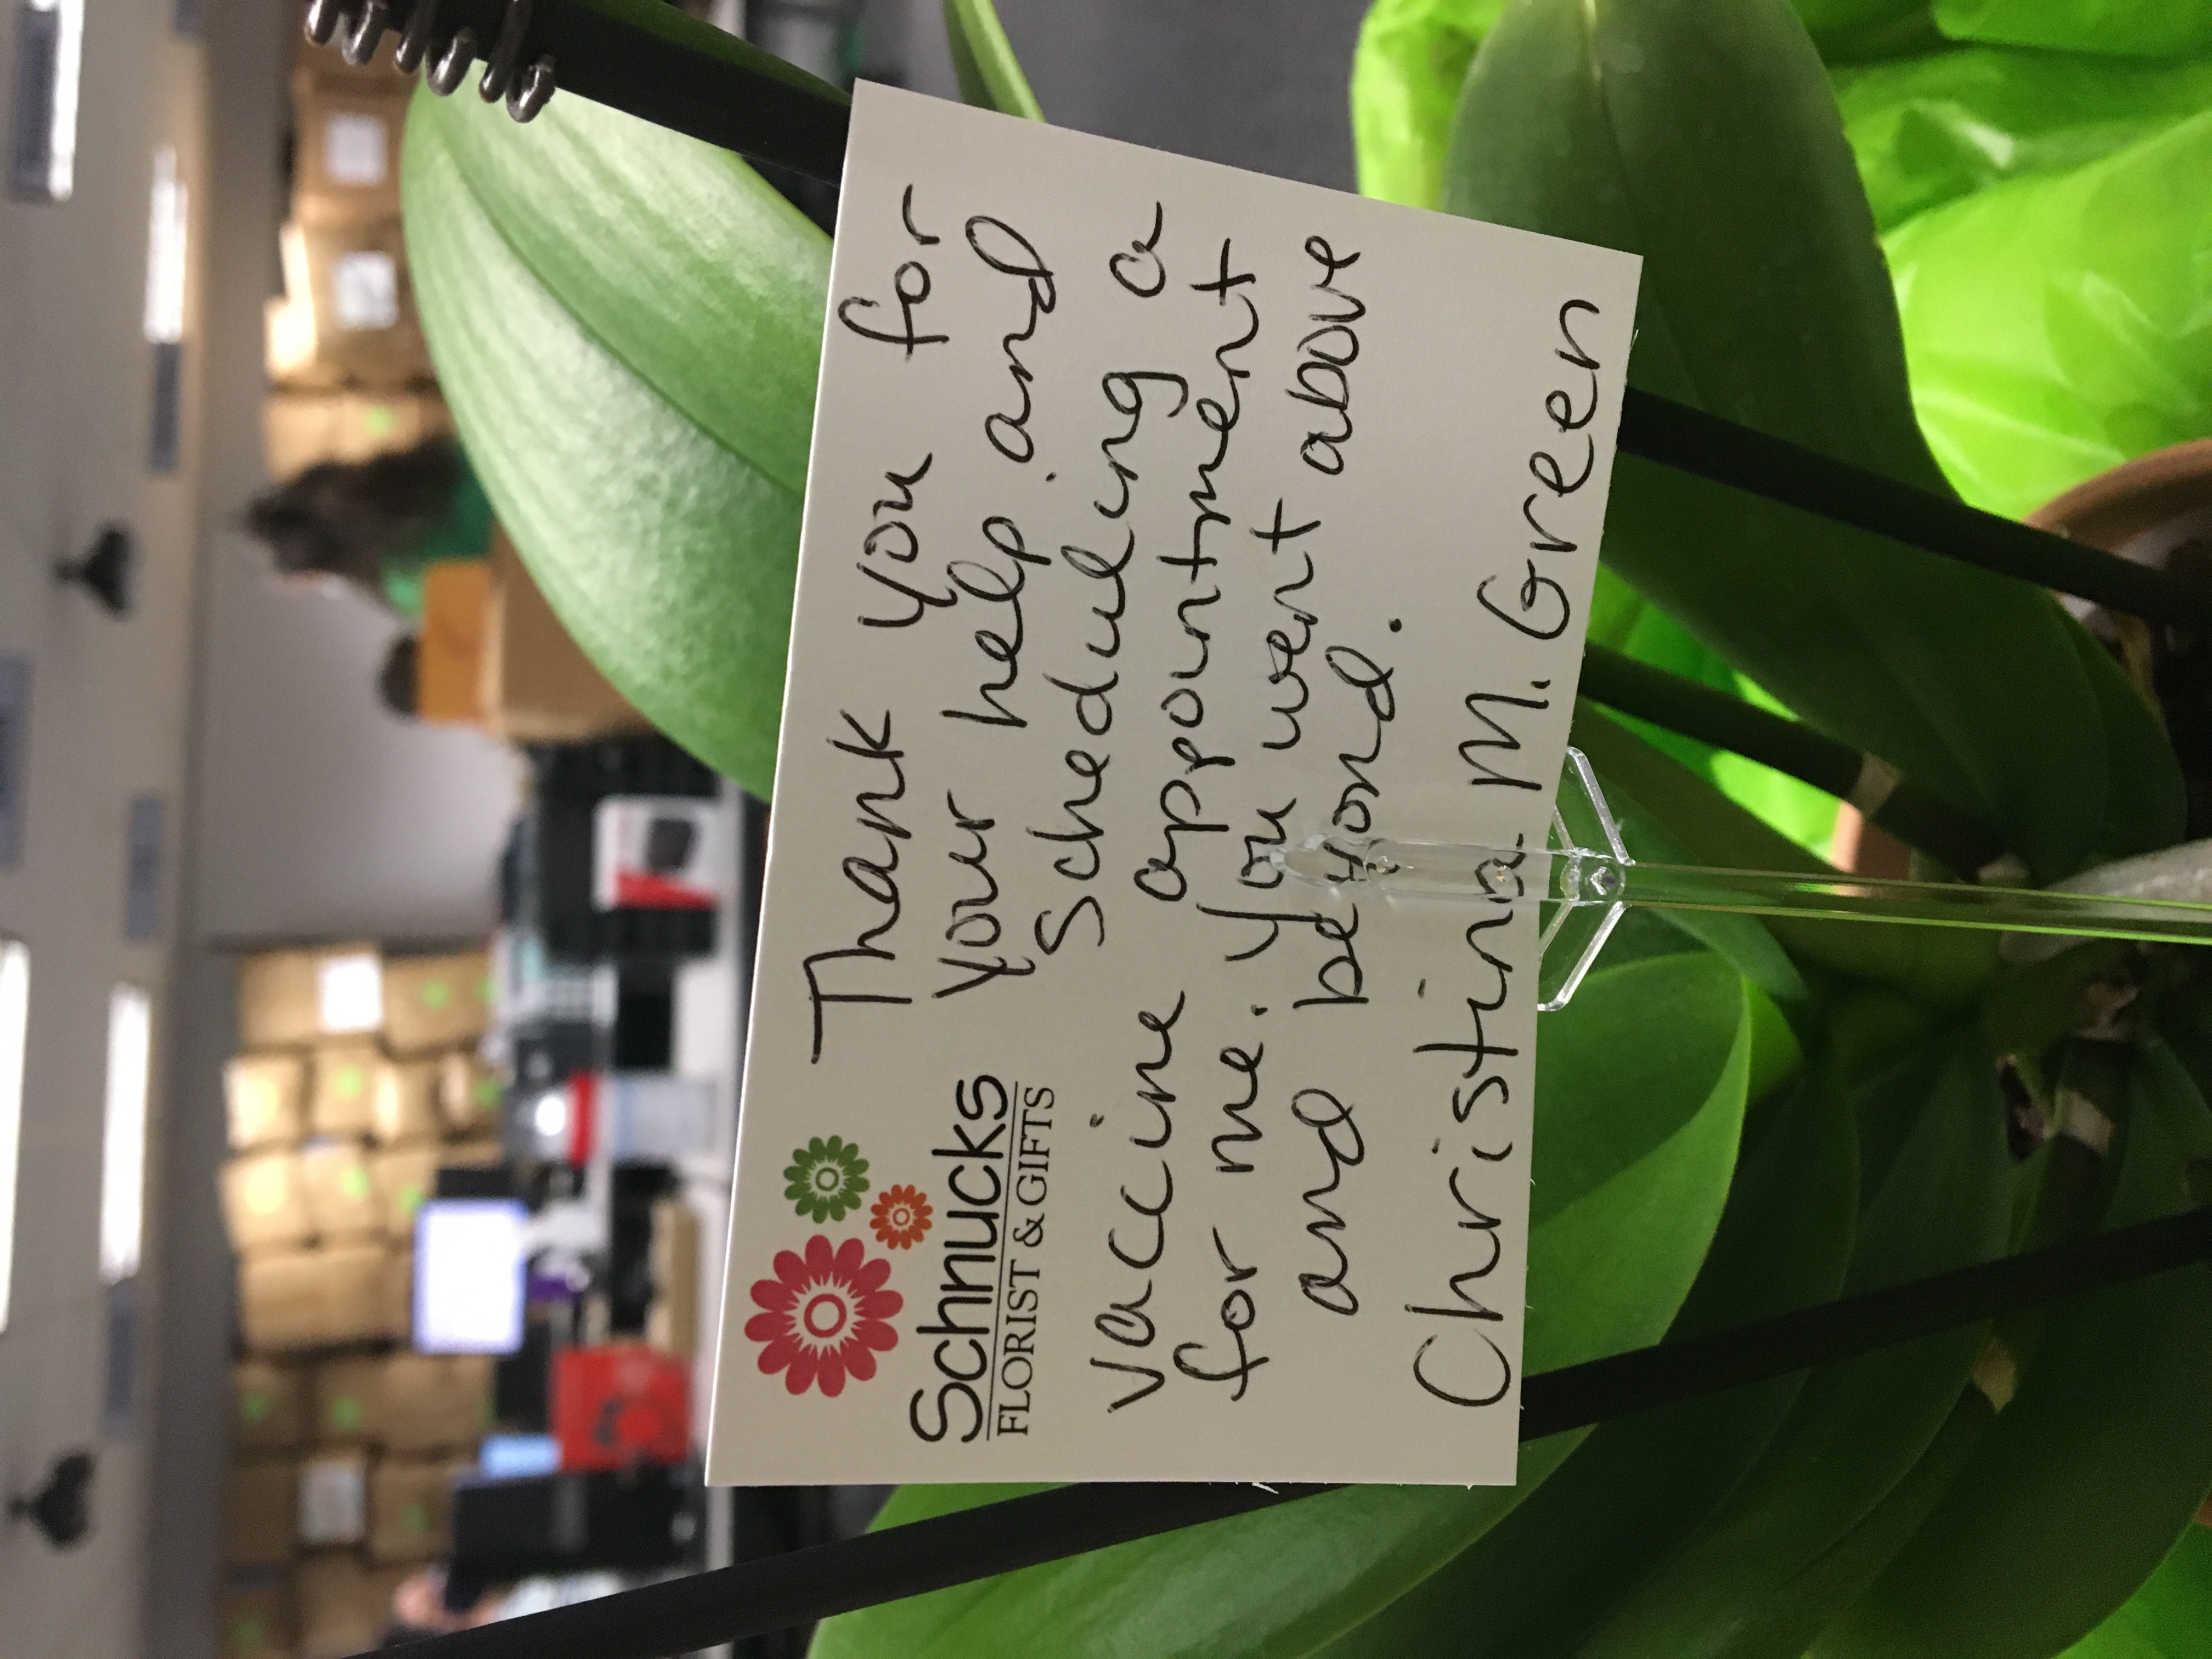 Thank you for
your help and
Schnucks
FLORIST & GIFTS
Scheduling a
vaccine appointment
for me. You went above
and beyond.
Christina M. Green